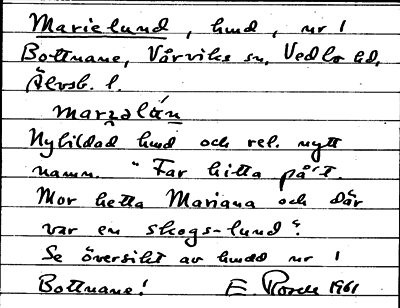 Marielund, hmd, nr 1
Bottnane, Vårviks sn, Vedbo hd,
Älvsb. l.
marɜalǻn
Nybildad hmd och rel. nytt
namn. "Far hitta på't.
Mor hetta Mariana och där
var en skogs-lund".
Se översikt av hmdd nr 1
Bottnane! E. Rosell 1961